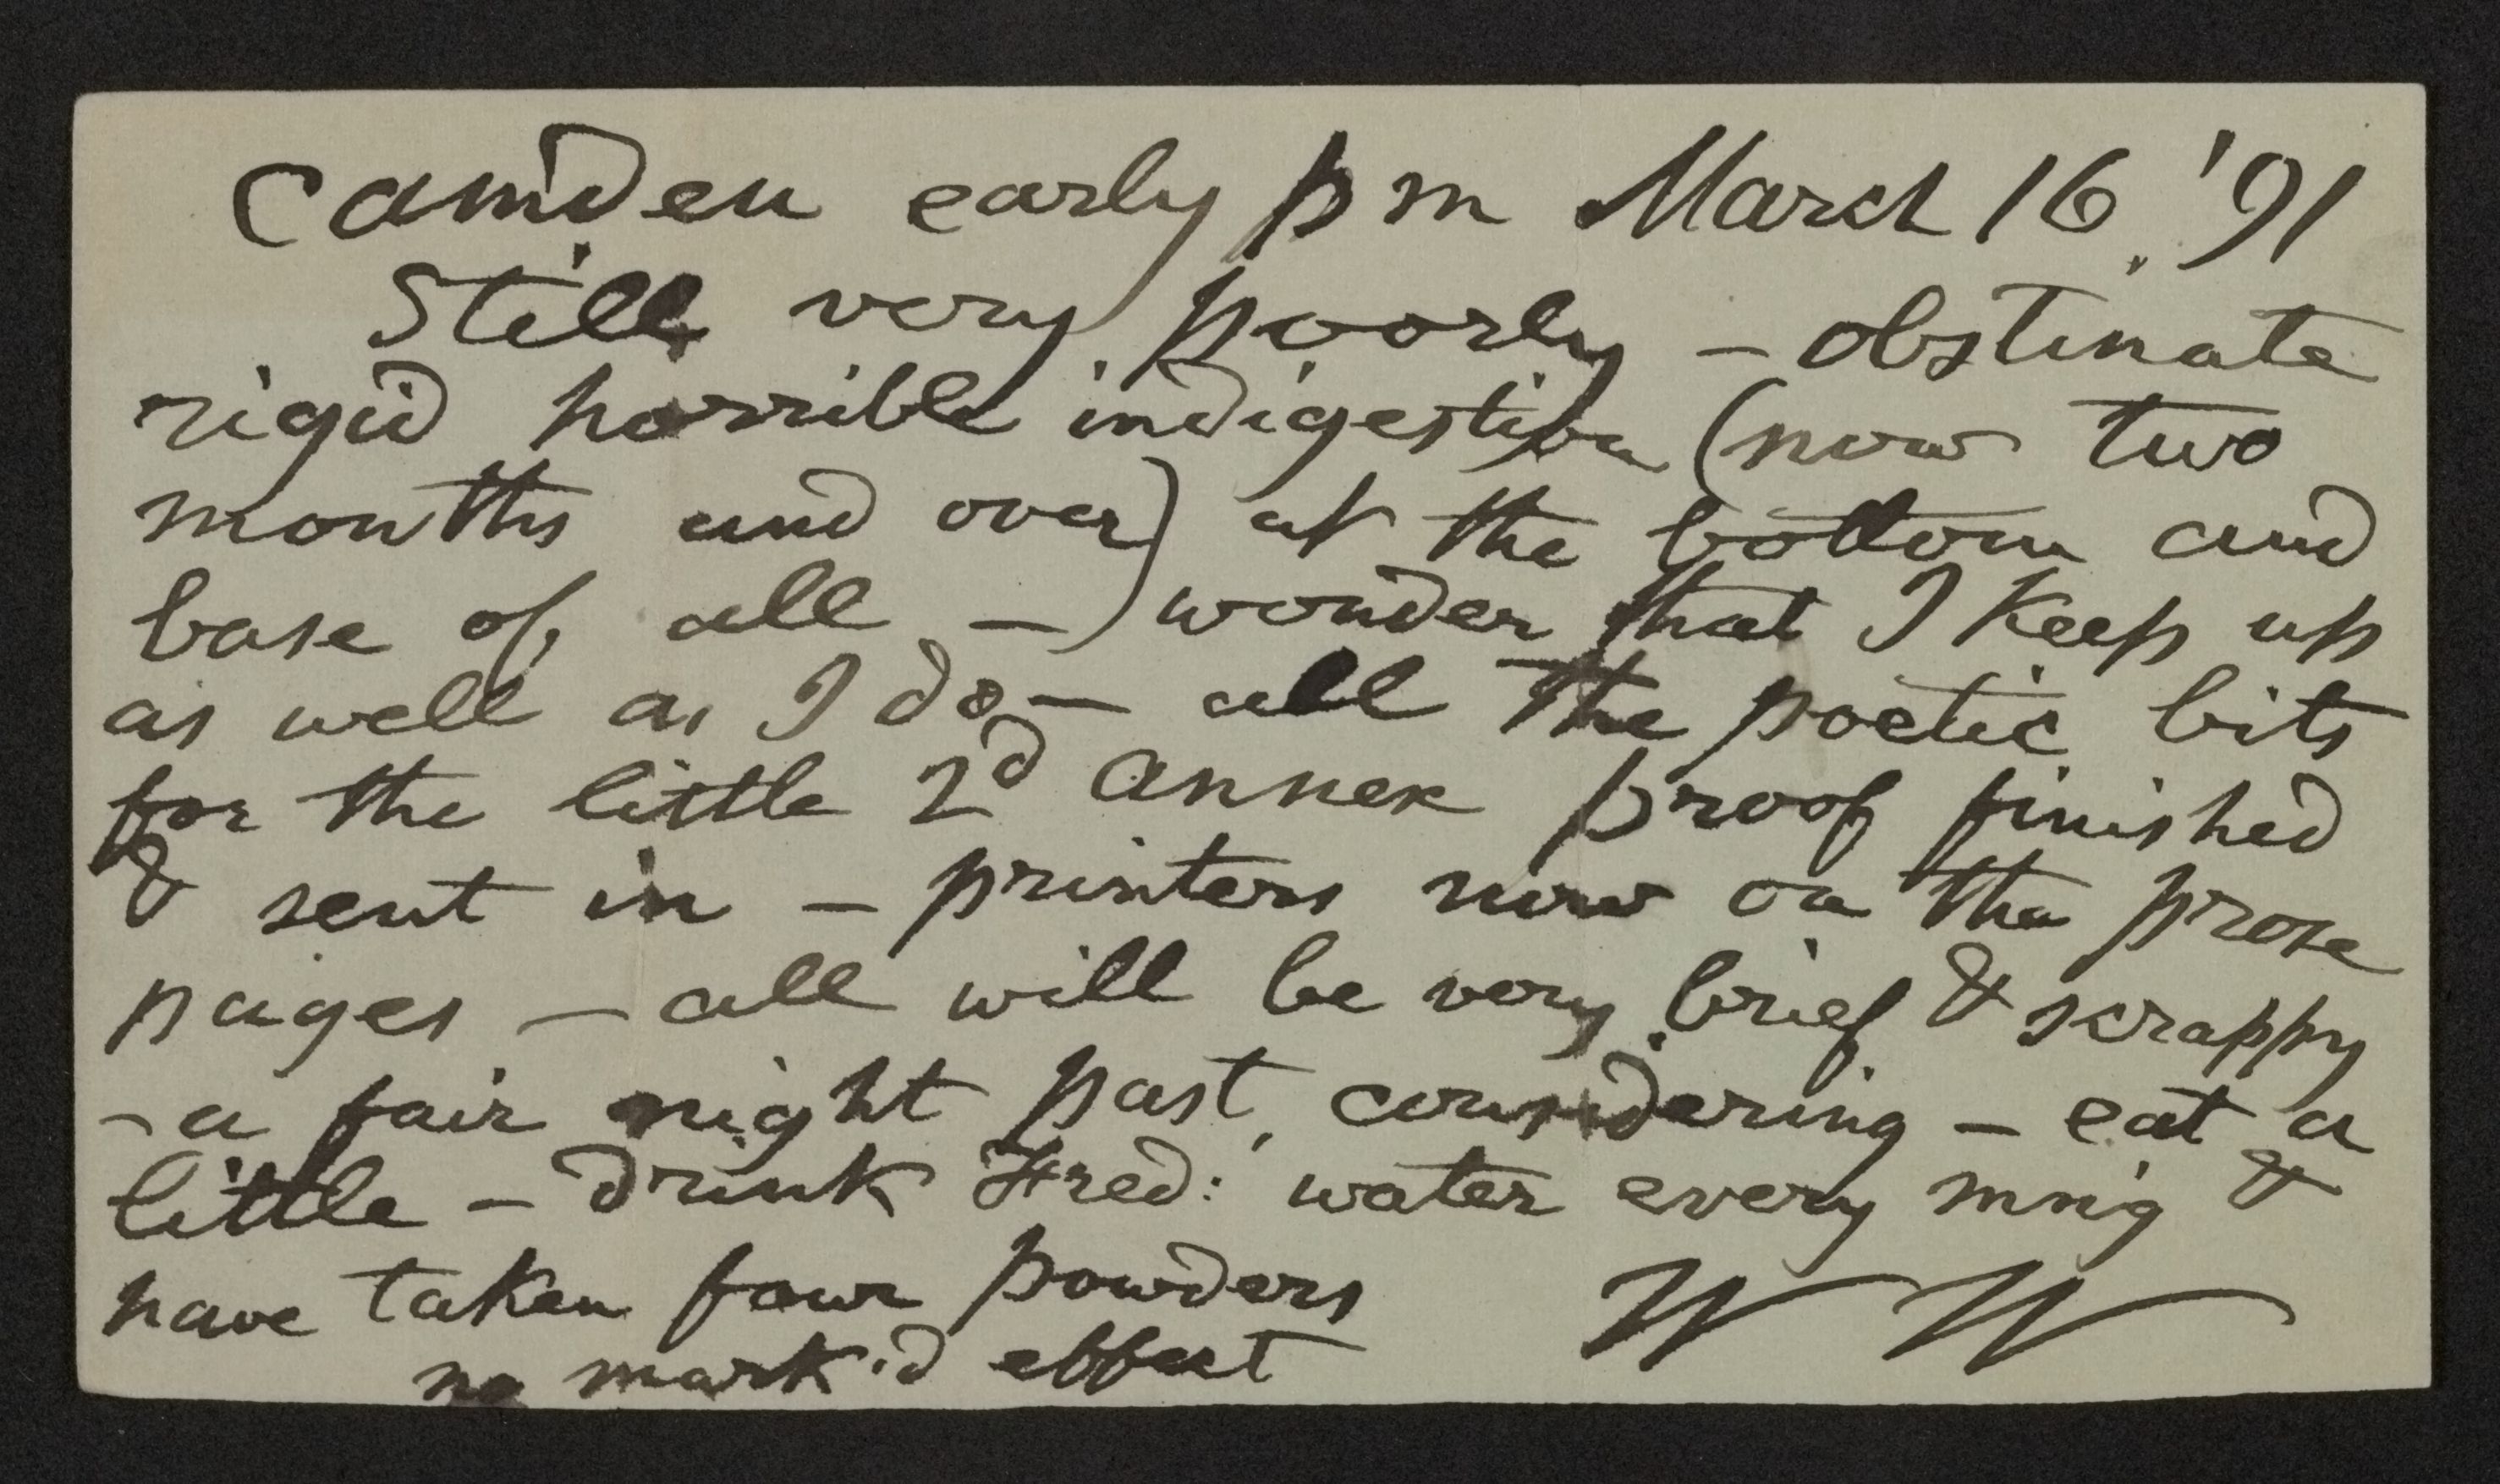 Camden early p m March 16, '91
Still very poorly – obstinate
rigid horrible indigestion (now two
months and over) at the bottom and
base of all –) wonder that I keep up
as well as I do – all the poetic bits
for the little 2d annex proof finished
& sent in – printers now on the prose
pages – all will be very brief & scrappy
– a fair night past, considering – eat a
little – drink Fred: water every mn'g &
have taken four powders
no mark'd effect
W W